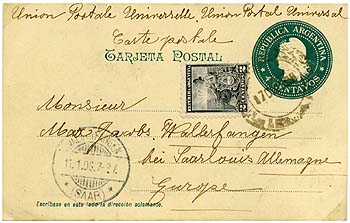 Union Postale Universelle, Union Postal Universal
Carte postale
TARJETA POSTAL
REPUBLICA ARGENTINA
4 CENTAVOS
Monsieur
Max Jacobs, Wallerfangen
bei Saarlouis Allemagne
Europe
(SAAR)
Escríbase en este lado la dirección solamente.